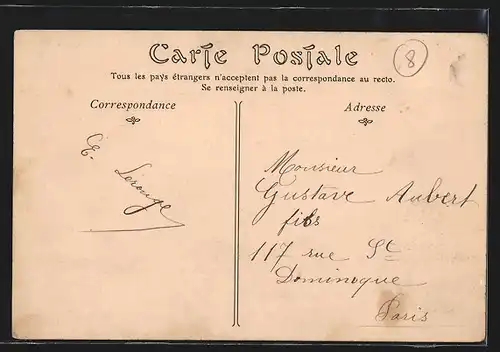 Carte Postale
8
Tous les pays étrangers n'acceptent pas la correspondance au recto.
Se renseigner à la poste.
Correspondance
Adresse
E. Lerouge
Monsieur
Gustave Aubert
fils
117 rue St
Dominique
Paris